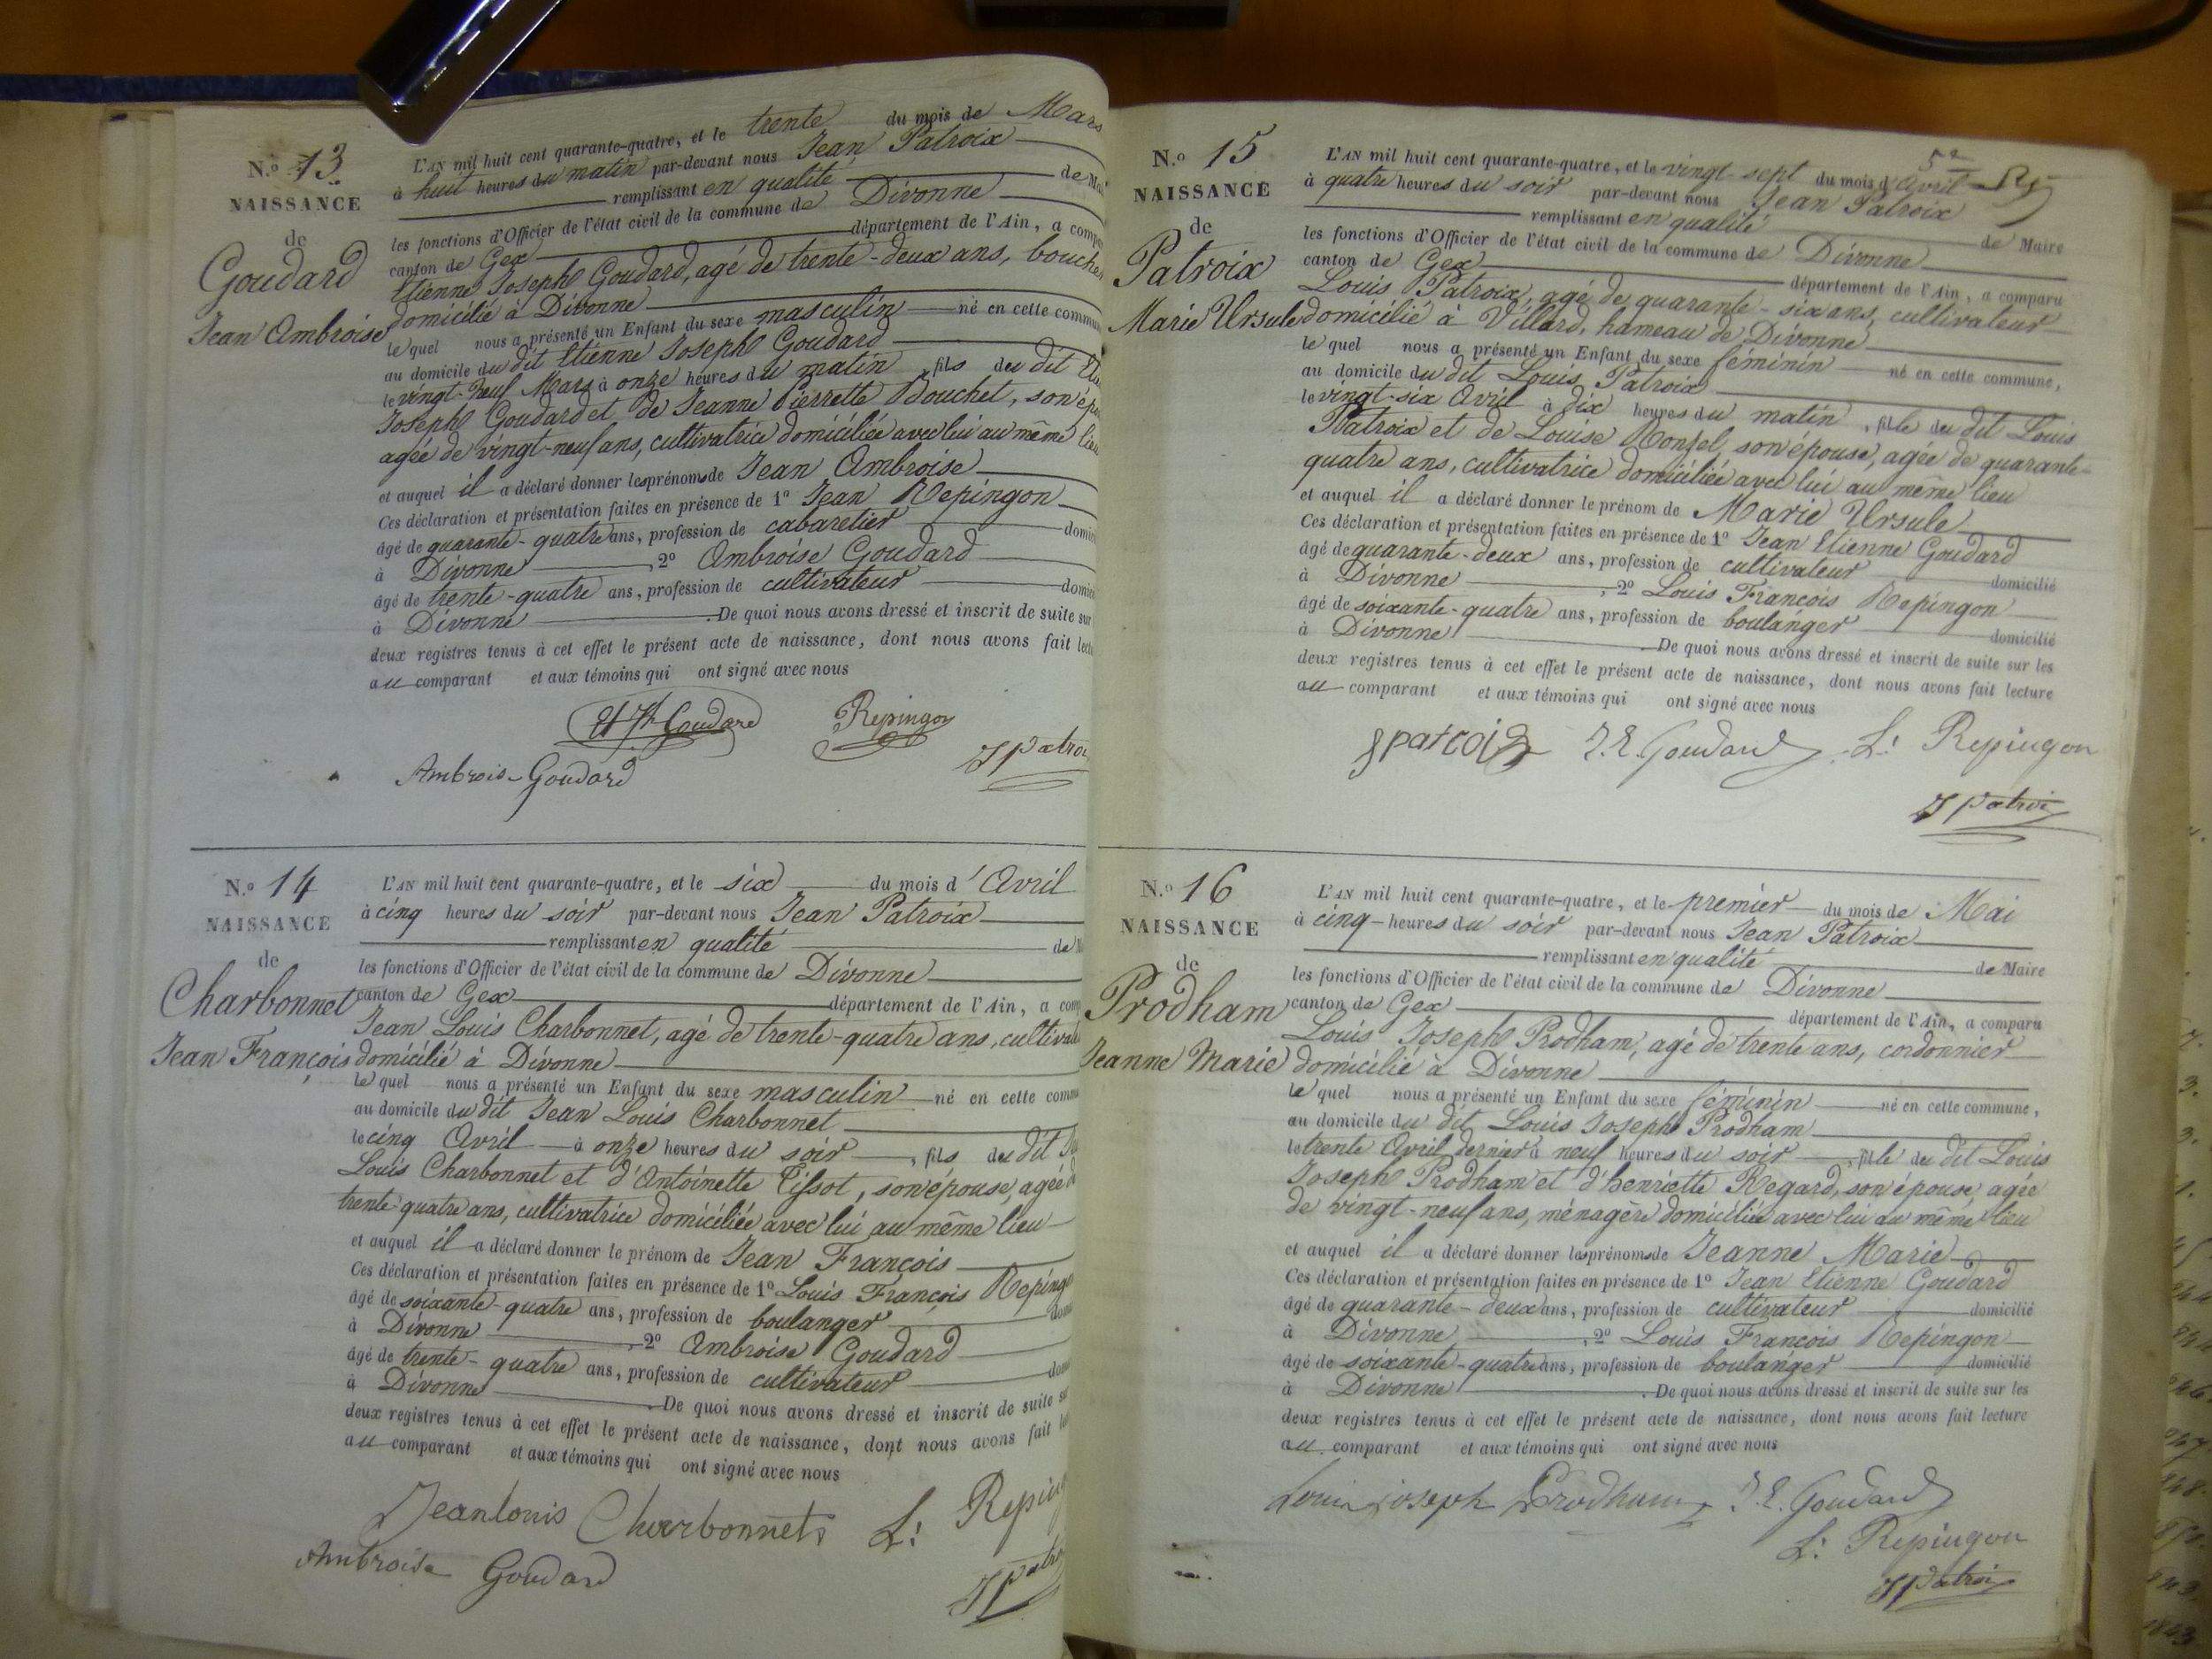 N.º 13
NAISSANCE
de
Goudard
Jean Ambroise
L'AN mil huit cent quarante-quatre, et le trente du mois de Mars
à huit heures du matin par-devant nous Jean Patroix
remplissant en qualité de
les fonctions d'Officier de l'état civil de la commune de Divonne
canton de Gex département de l'Ain, a
Etienne Joseph Goudard, agé de trente-deux ans,
domicilié à Divonne
le quel nous a présenté un Enfant du sexe masculin né en cette
au domicile du dit Etienne Joseph Goudard
le vingt-neuf Mars à onze heures du matin, fils du dit
Joseph Goudard et de Jeanne Pierrette Bouchet, son
agée de vingt-neuf ans, cultivatrice domiciliée avec lui au même lieu
et auquel il a déclaré donner les prénoms de Jean Ambroise
Ces déclaration et présentation faites en présence de 1º Jean Repingon
âgé de quarante-quatre ans, profession de cabaretier
à Divonne, 2º Ambroise Goudard
âgé de trente-quatre ans, profession de cultivateur
à Divonne. De quoi nous avons dressé et inscrit de suite sur
deux registres tenus à cet effet le présent acte de naissance, dont nous avons fait
au comparant et aux témoins qui ont signé avec nous
Goudard Repingon
Ambroise Goudard
N.º 14
NAISSANCE
de
Charbonnet
Jean François
L'AN mil huit cent quarante-quatre, et le six du mois d'Avril
à cinq heures du soir par-devant nous Jean Patroix
remplissant en qualité de
les fonctions d'Officier de l'état civil de la commune de Divonne
canton de Gex département de l'Ain, a
Jean Louis Charbonnet, agé de trente-quatre ans,
domicilié à Divonne
le quel nous a présenté un Enfant du sexe masculin né en cette
au domicile du dit Jean Louis Charbonnet
le cinq Avril à onze heures du soir, fils du dit
Louis Charbonnet et d'Antoinette Tissot, son épouse, agée
trente quatre ans, cultivatrice domiciliée avec lui au même lieu
et auquel il a déclaré donner le prénom de Jean François
Ces déclaration et présentation faites en présence de 1º Louis François
âgé de soixante-quatre ans, profession de boulanger
à Divonne, 2º Ambroise Goudard
âgé de trente-quatre ans, profession de cultivateur
à Divonne. De quoi nous avons dressé et inscrit de suite
deux registres tenus à cet effet le présent acte de naissance, dont nous avons fait
au comparant et aux témoins qui ont signé avec nous
Jean louis Charbonnet L:
Ambroise Goudard
N.º 15
NAISSANCE
de
Patroix
Marie Ursule
L'AN mil huit cent quarante-quatre, et le vingt-sept du mois d'Avril
à quatre heures du soir par-devant nous Jean Patroix
remplissant en qualité de Maire
les fonctions d'Officier de l'état civil de la commune de Divonne
canton de Gex département de l'Ain, a comparu
Louis Patroix, agé de quarante-six ans, cultivateur
domicilié à Villard, hameau de Divonne
le quel nous a présenté un Enfant du sexe féminin né en cette commune,
au domicile du dit Louis Patroix
le vingt-six Avril à dix heures du matin, fille du dit Louis
Patroix et de Louise son épouse, agée de quarante-
quatre ans, cultivatrice domiciliée avec lui au même lieu
et auquel il a déclaré donner le prénom de Marie Ursule
Ces déclaration et présentation faites en présence de 1º Jean Etienne Goudard
âgé de quarante-deux ans, profession de cultivateur domicilié
à Divonne, 2º Louis François Repingon
âgé de soixante-quatre ans, profession de boulanger domicilié
à Divonne. De quoi nous avons dressé et inscrit de suite sur les
deux registres tenus à cet effet le présent acte de naissance, dont nous avons fait lecture
au comparant et aux témoins qui ont signé avec nous
J. E. Goudard L: Repingon
J Patroix
N.º 16
NAISSANCE
de
Prodham
Jeanne Marie
L'AN mil huit cent quarante-quatre, et le premier du mois de Mai
à cinq heures du soir par-devant nous Jean Patroix
remplissant en qualité de Maire
les fonctions d'Officier de l'état civil de la commune de Divonne
canton de Gex département de l'Ain, a comparu
Louis Joseph Prodham, agé de trente ans, cordonnier
domicilié à Divonne
le quel nous a présenté un Enfant du sexe féminin né en cette commune,
au domicile du dit Louis Joseph Prodham
le trente Avril dernier à neuf heures du soir, fille du dit Louis
Joseph Prodham et d'henriette Regard, son épouse, agée
de vingt-neuf ans, ménagère domiciliée avec lui au même lieu
et auquel il a déclaré donner les prénoms de Jeanne Marie
Ces déclaration et présentation faites en présence de 1º Jean Etienne Goudard
âgé de quarante-deux ans, profession de cultivateur domicilié
à Divonne, 2º Louis François Repingon
âgé de soixante-quatre ans, profession de boulanger domicilié
à Divonne. De quoi nous avons dressé et inscrit de suite sur les
deux registres tenus à cet effet le présent acte de naissance, dont nous avons fait lecture
au comparant et aux témoins qui ont signé avec nous
Louis joseph Prodham J. E. Goudard
L: Repingon
J Patroix